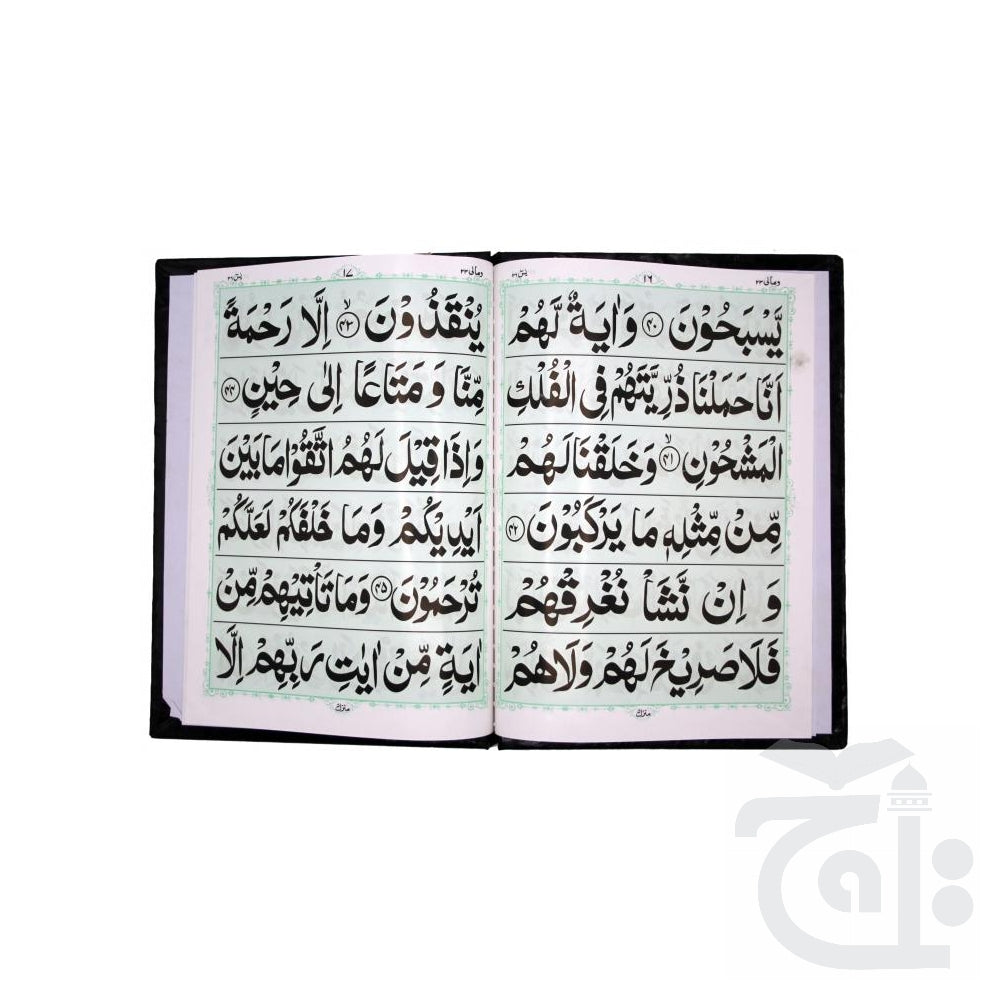 وماليٓ ٢٣
١٦
يٰسٓ ٣٦
يَّسْبَحُوْنَ ﴿۴۰﴾ وَاٰيَةٌ لَّهُمْ
اَنَّا حَمَلْنَا ذُرِّيَّتَهُمْ فِى الْفُلْكِ
الْمَشْحُوْنِ ﴿۴۱﴾ۙ وَخَلَقْنَا لَهُمْ
مِّنْ مِّثْلِهٖ مَا يَرْكَبُوْنَ ﴿۴۲﴾
وَ اِنْ نَّشَاْ نُغْرِقْهُمْ
فَلَا صَرِيْخَ لَهُمْ وَلَا هُمْ
منزل ۵
وماليٓ ٢٣
١٧
يٰسٓ ٣٦
يُنْقَذُوْنَ ﴿۴۳﴾ۙ اِلَّا رَحْمَةً
مِّنَّا وَ مَتَاعًا اِلٰى حِيْنٍ ﴿۴۴﴾
وَاِذَا قِيْلَ لَهُمُ اتَّقُوْا مَا بَيْنَ
اَيْدِيْكُمْ وَمَا خَلْفَكُمْ لَعَلَّكُمْ
تُرْحَمُوْنَ ﴿۴۵﴾ وَمَا تَاْتِيْهِمْ مِّنْ
اٰيَةٍ مِّنْ اٰيٰتِ رَبِّهِمْ اِلَّا
منزل ۵